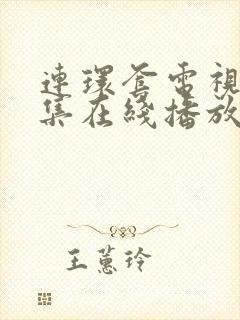 連環套電視
集在綫播放
王蕙玲